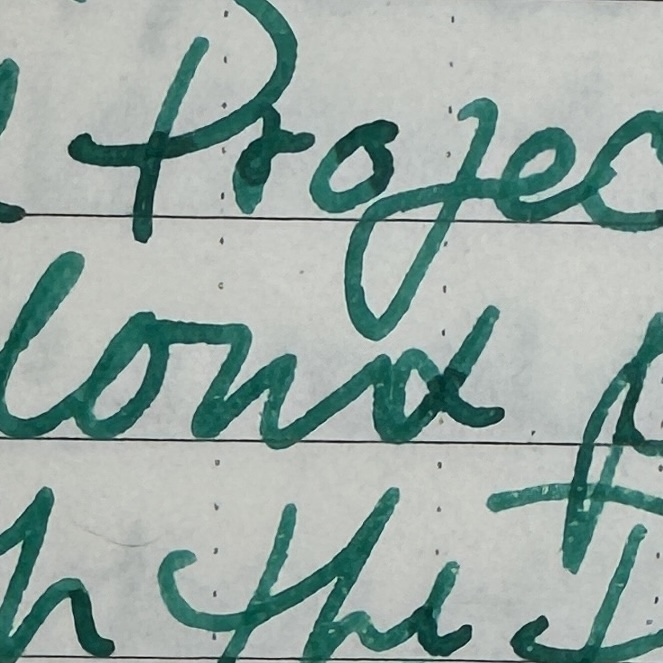 Projec
lond
h the D